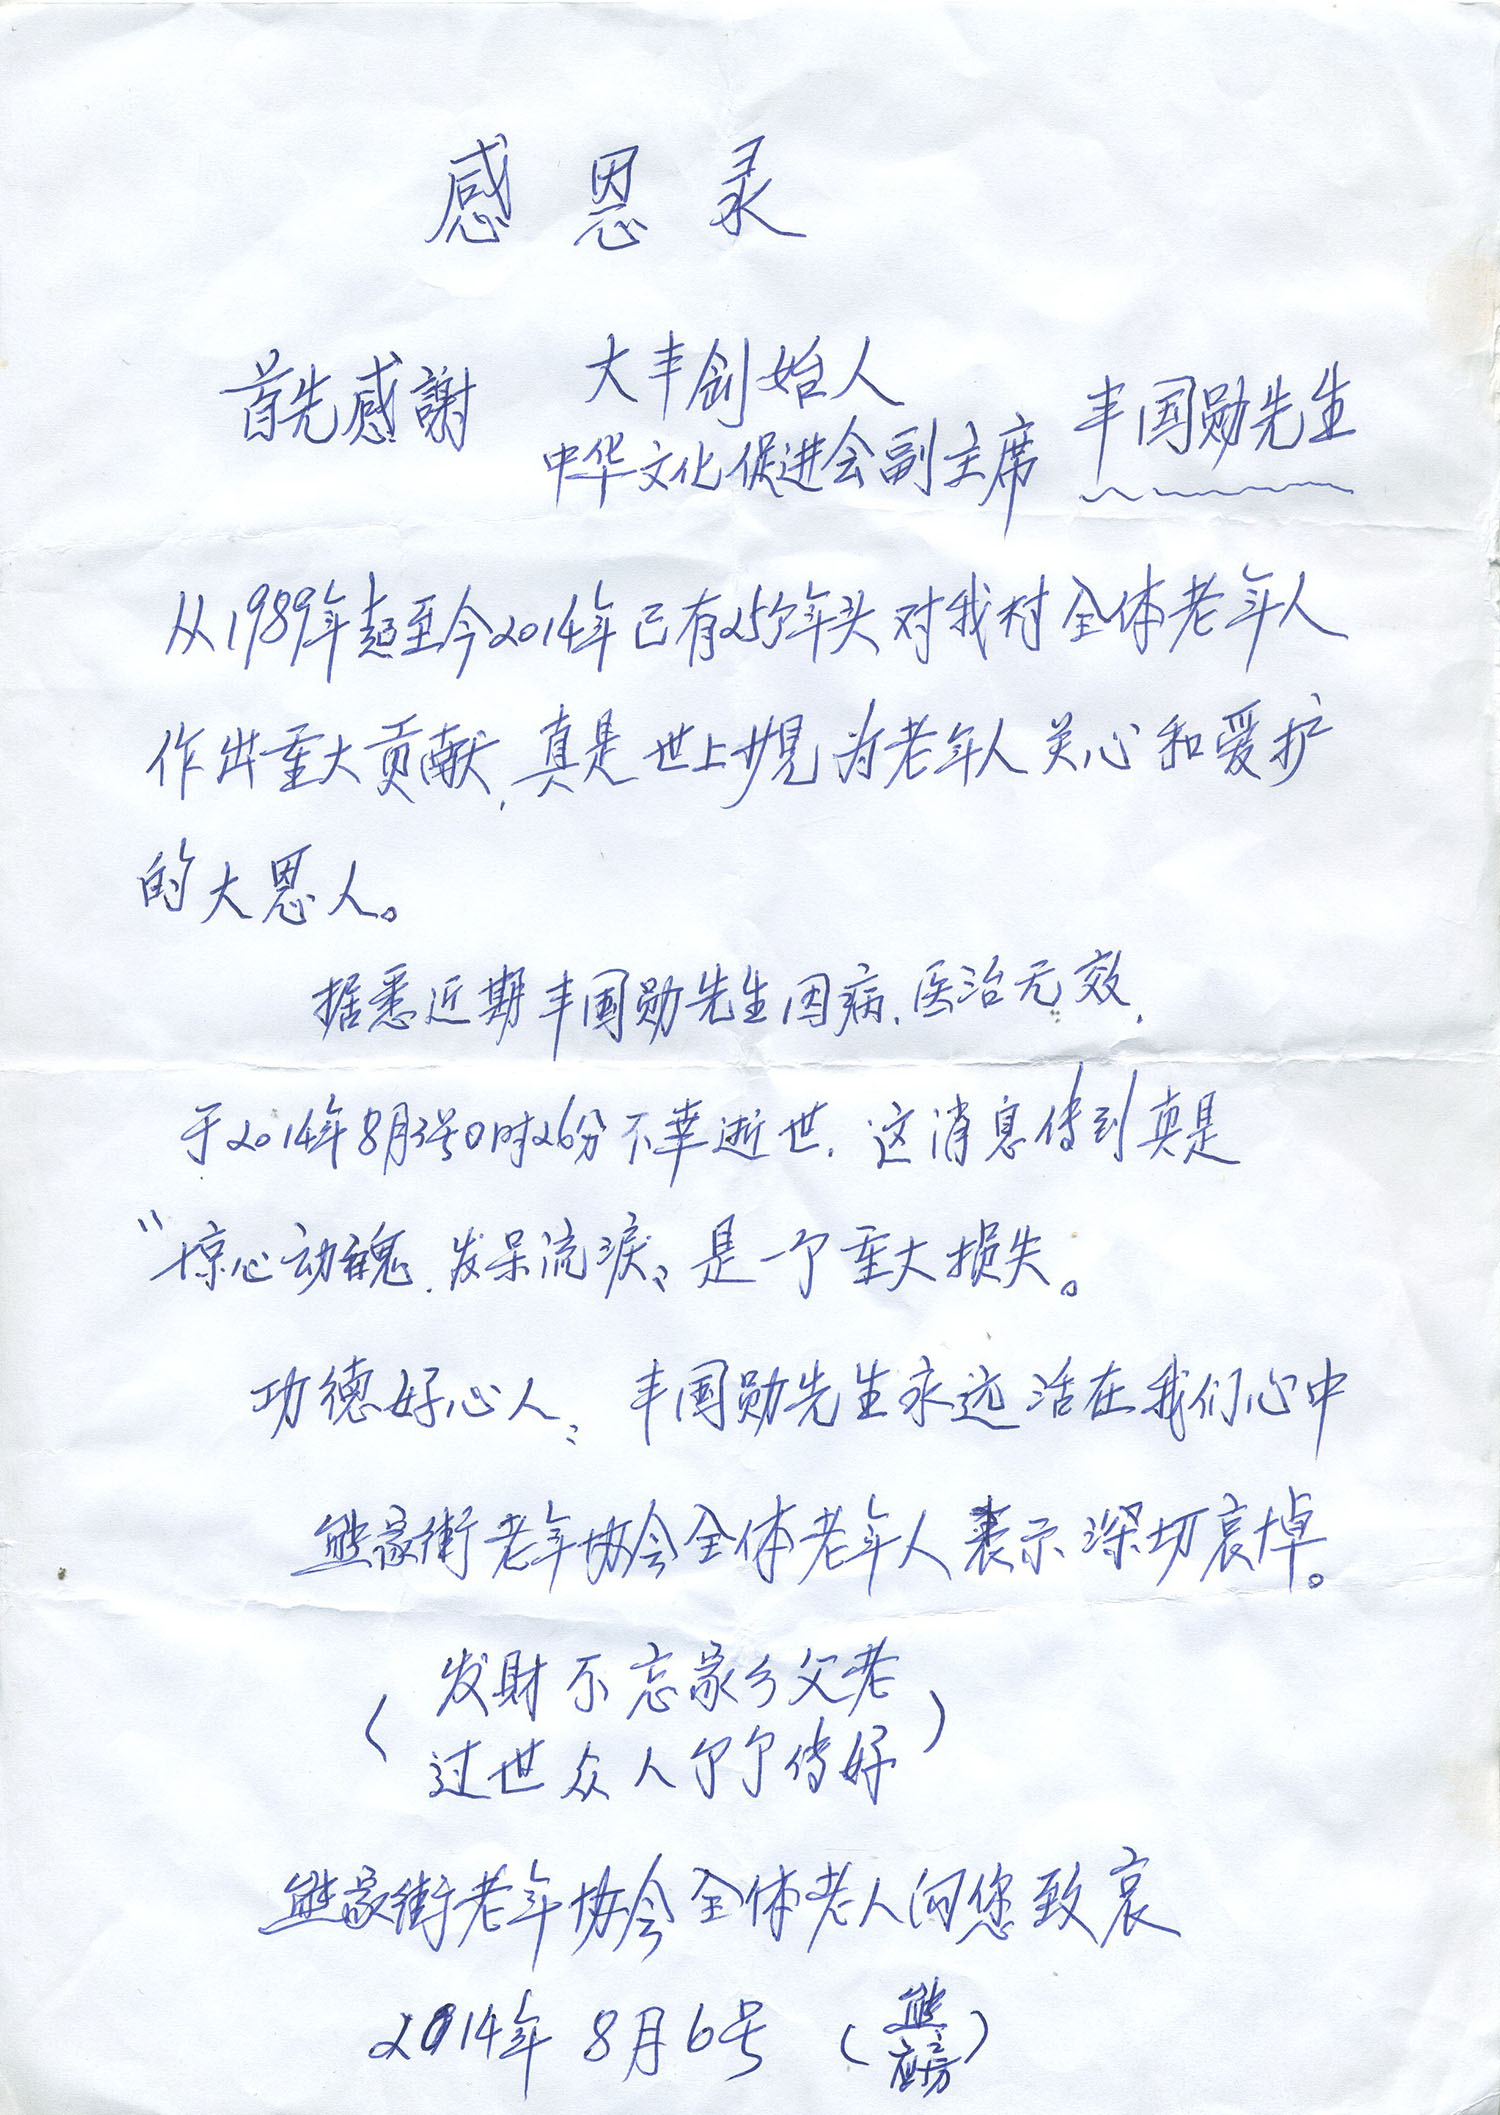 感恩录
首先感謝 大丰创始人
中华文化促进会副主席 丰国勋先生
从1989年起至今2014年已有25个年头对我村全体老年人
作出重大贡献,真是世上少見为老年人关心和爱护
的大恩人。
据悉近期丰国勋先生因病,医治无效,
于2014年8月3号0时26分不幸逝世.这消息传到真是
“惊心动魂,发呆流淚”是一个重大损失。
功德好心人:丰国勋先生永远活在我们心中
熊家街老年协会全体老年人表示深切哀悼。
(发財不忘家乡父老
过世众人个个传好)
熊家街老年协会全体老人向您致哀
2014年8月6号(熊
)